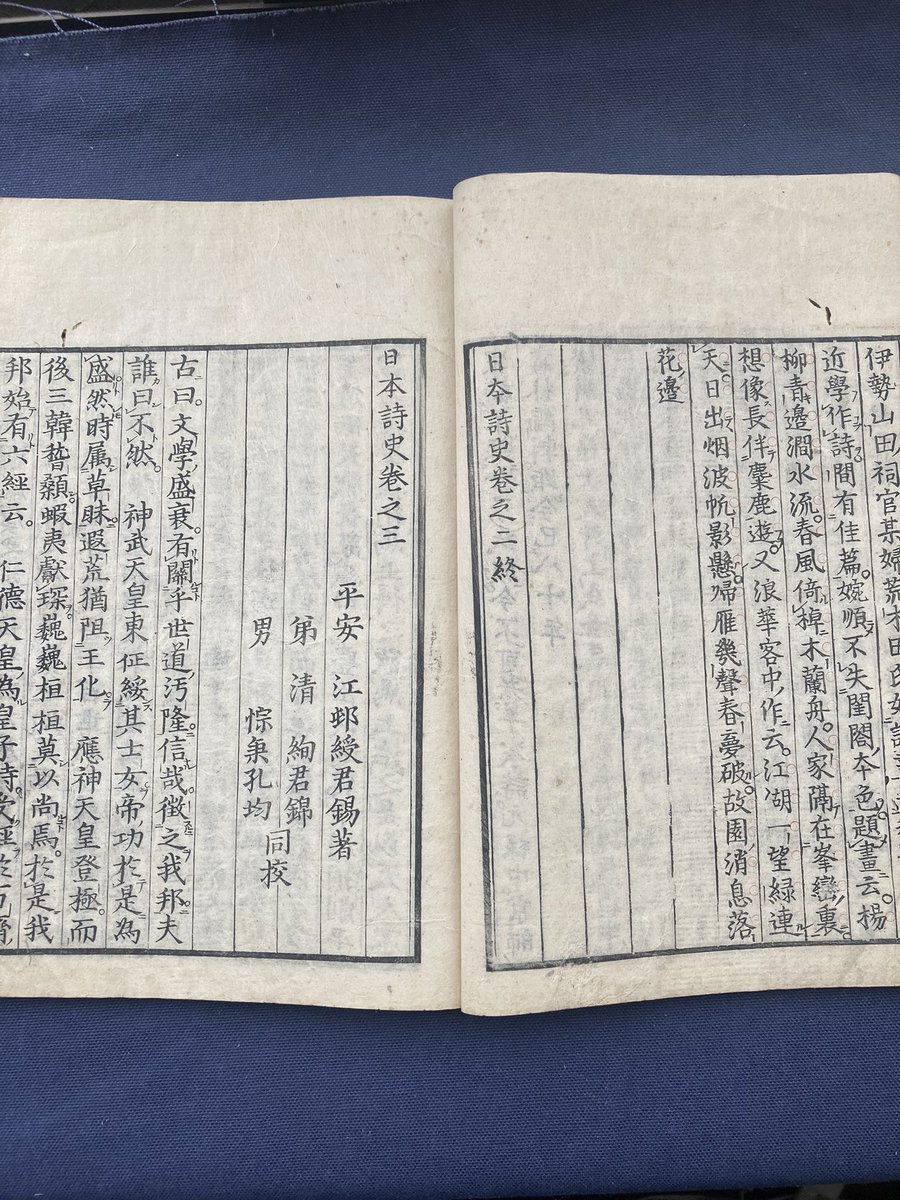 伊勢山田祠官某婦荒木田氏女
近學作詩間有佳篇婉順不失閨閤本色題畫云楊
柳青邊澗水流春風倚棹木蘭舟人家隔在峯巒裏
想像長伴麋鹿遊又浪華客中作云江湖一望緑連
天日出烟波帆影懸歸雁幾聲春夢破故園消息落
花邊
日本詩史卷之二終
日本詩史卷之三
平安 江邨綬君錫著
弟 清絢君錦
男 悰秉孔均 同挍
古曰文學盛衰有關乎世道汚隆信哉徵之我邦夫
誰曰不然 神武天皇東征綏其士女帝功於是為
盛然時属草昧遐荒猶阻王化 應神天皇登極而
後三韓誓顙蝦夷獻琛巍巍桓桓莫以尚焉於是我
邦始有六經云 仁德天皇為皇子時受經於